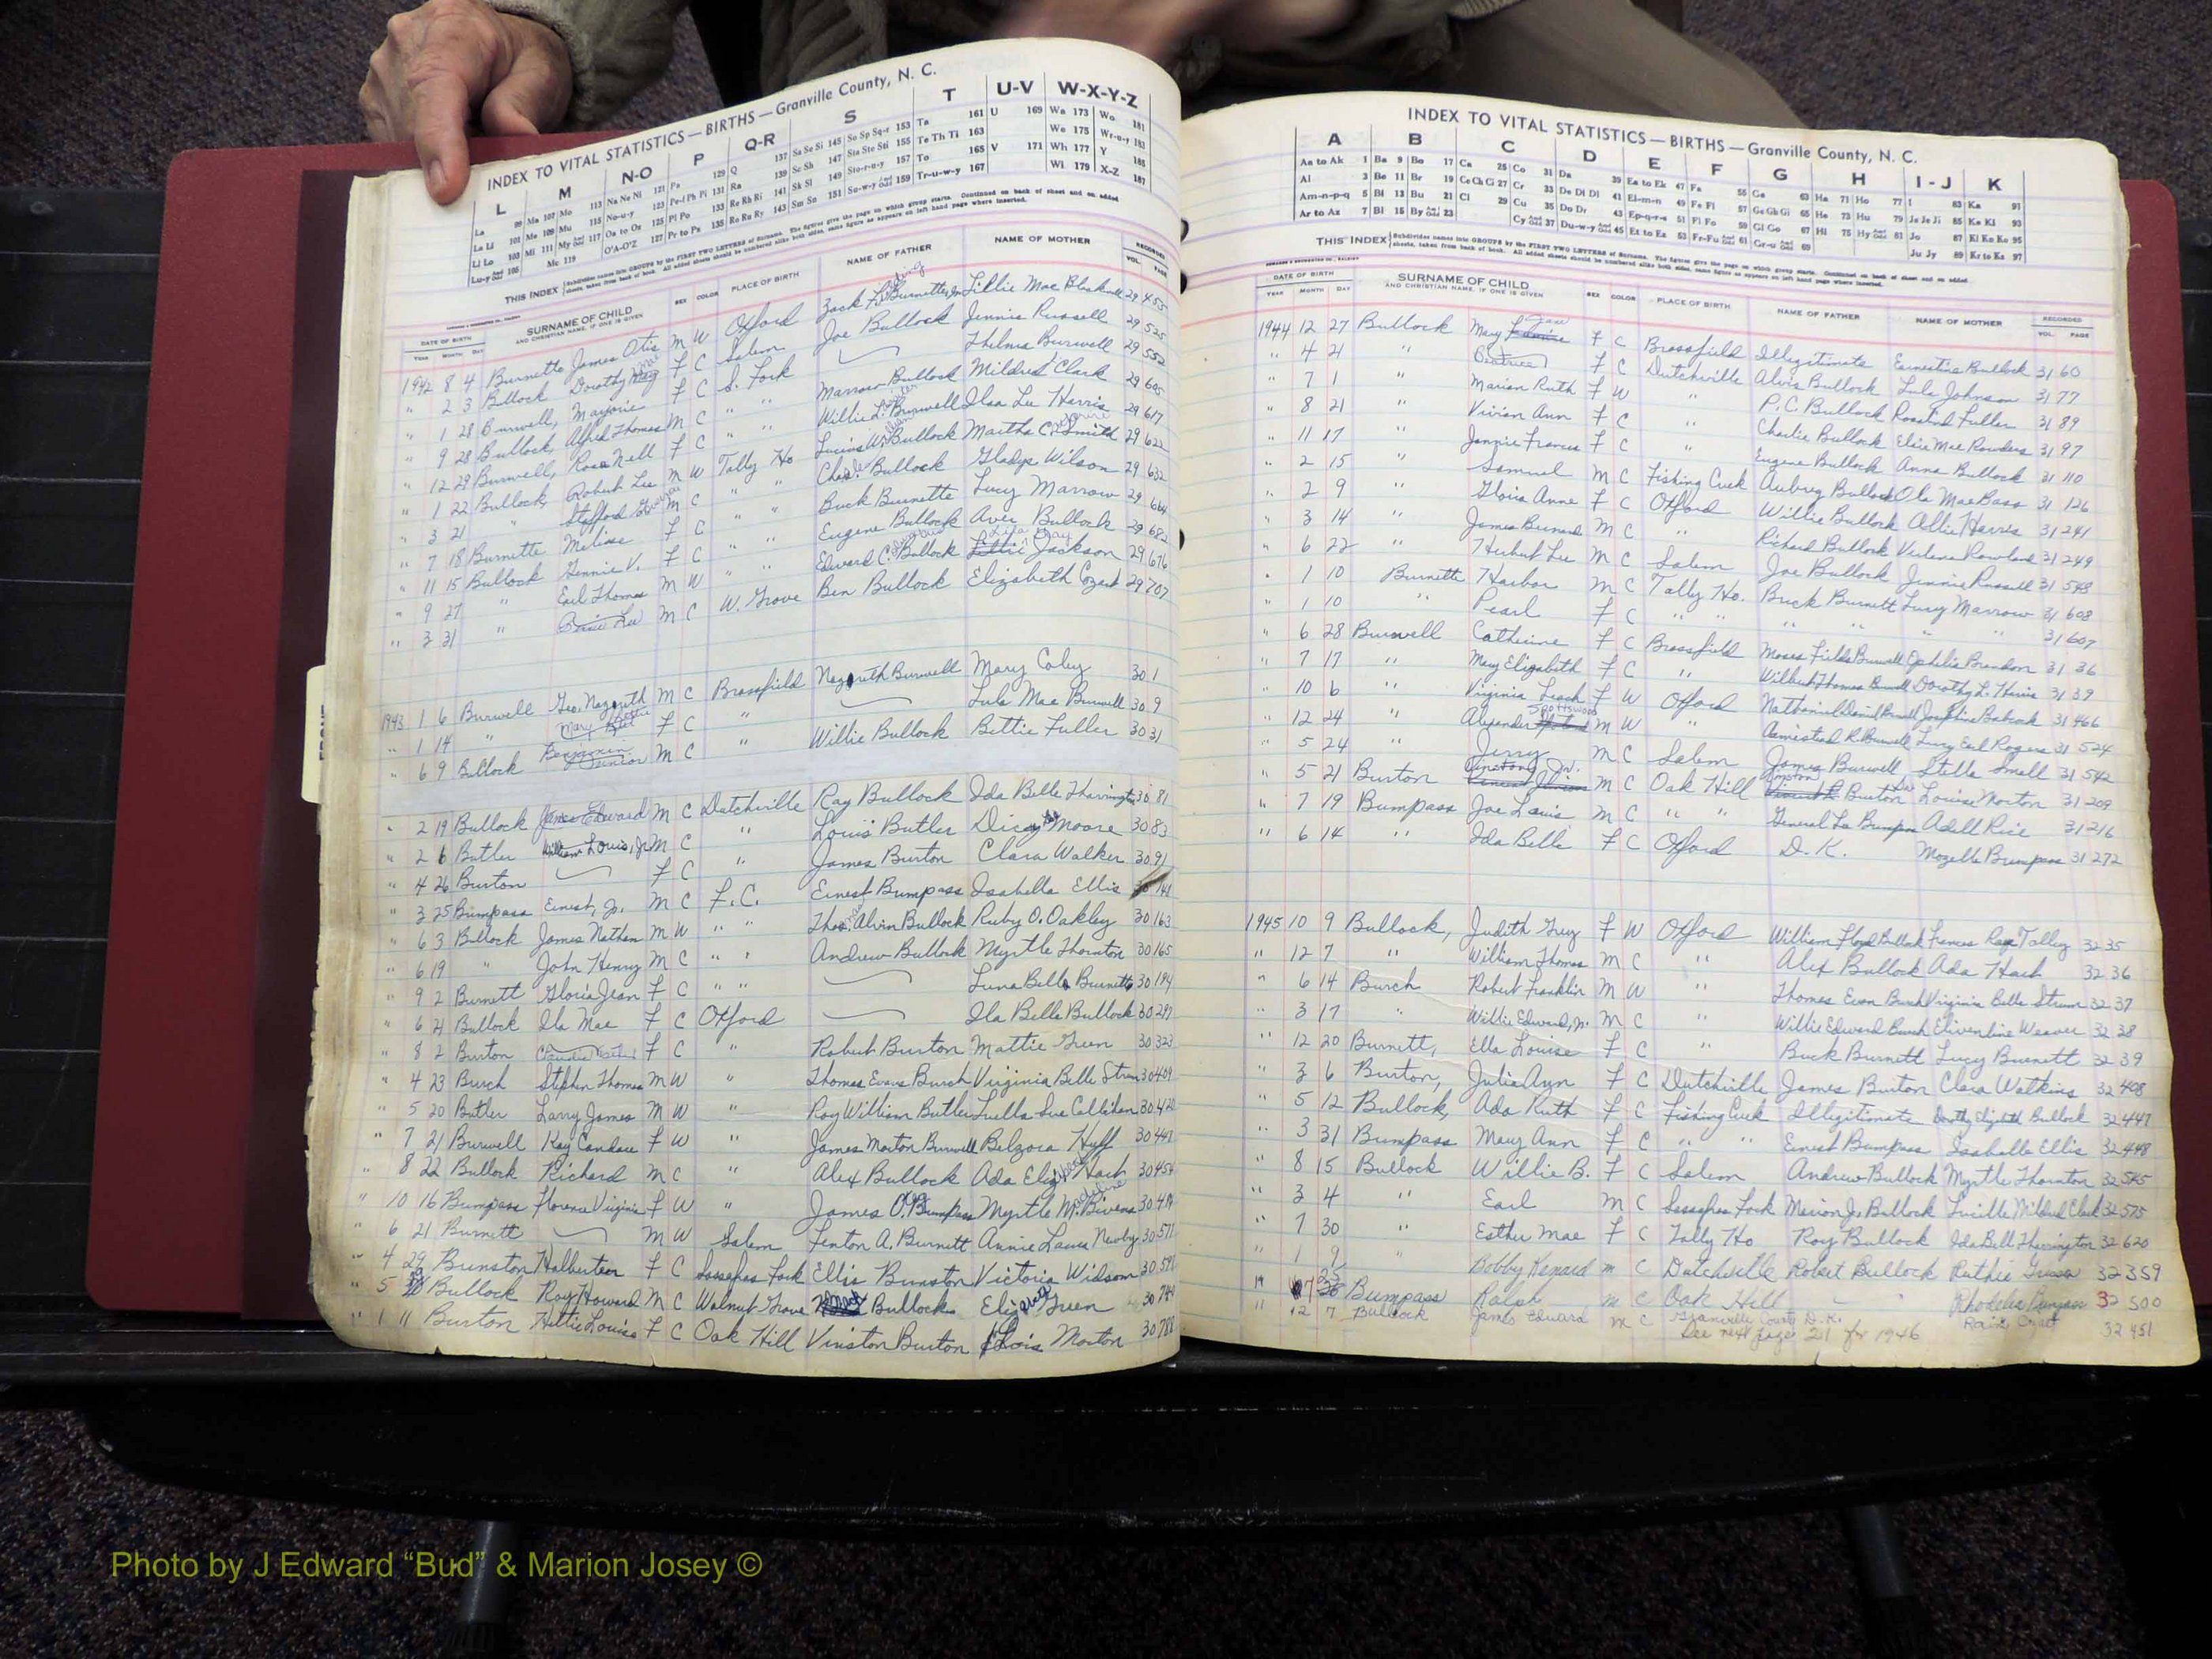 INDEX TO VITAL STATISTICS — BIRTHS — Granville County, N. C.
L M N-O P Q-R S T U-V W-X-Y-Z
La 99 Ma 107 Mo 113 Na Ne Ni 121 Pa 129 Q 137 Sa Se Si 145 So Sp Sq-r 153 Ta 161 U 169 Wa 173 Wo 181
La Li 101 Me 109 Mu 115 No-u-y 123 Pe-f Ph Pi 131 Ra 139 Sc Sh 147 Sta Ste Sti 155 Te Th Ti 163 We 175 Wr-u-y 183
Ll Lo 103 Mi 111 My And Odd 117 Oa to Oz 125 Pl Po 133 Re Rh Ri 141 Sk Sl 149 Sto-r-u-y 157 To 165 V 171 Wh 177 Y 185
Lu-y And Odd 105 Mc 119 O'A-O'Z 127 Pr to Px 135 Ro Ru Ry 143 Sm Sn 151 Su-w-y And Odd 159 Tr-u-w-y 167 Wi 179 X-Z 187
THIS INDEX Subdivides names into GROUPS by the FIRST TWO LETTERS of Surname. The figures give the page on which group starts. Continued on back of sheet and on added
sheets, taken from back of book. All added sheets should be numbered alike both sides, same figure as appears on left hand page where inserted.
DATE OF BIRTH SURNAME OF CHILD SEX COLOR PLACE OF BIRTH NAME OF FATHER NAME OF MOTHER RECORDED
YEAR MONTH DAY AND CHRISTIAN NAME, IF ONE IS GIVEN VOL. PAGE
1942 8 4 Burnette James Otis M W Oxford Zack Burnette Jr Lillie Mae Blackwell 29 455
" 2 3 Bullock Dorothy Mae F C Salem Joe Bullock Jennie Russell 29 525
" 1 28 Burwell, Marjorie F C S. Fork Thelma Burwell 29 552
" 9 28 Bullock, Alfred Thomas M C " " Marrow Bullock Mildred Clark 29 605
" 12 29 Burwell, Rosa Nell F C " " Willie L. Burwell Ilaa Lee Harris 29 617
" 1 22 Bullock, Robert Lee M W Tally Ho Lucius W. Bullock Martha C. Smith 29 622
" 3 21 " Stafford M C " " Bullock Gladys Wilson 29 632
" 7 18 Burnette Melissa F C " " Buck Burnette Lucy Marrow 29 664
" 11 15 Bullock Gennie V. F C " " Eugene Bullock Aver Bullock 29 682
" 9 27 " Earl Thomas M W " " Edward C. Bullock Jackson 29 676
" 3 31 " M C W. Grove Ben Bullock Elizabeth Cozart 29 707
1943 1 6 Burwell Geo. Nazareth M C Brassfield Nazareth Burwell Mary Coley 30 1
" 1 14 " F C " Lula Mae Burwell 30 9
" 6 9 Bullock Benjamin Junior M C " Willie Bullock Bettie Fuller 30 31
" 2 19 Bullock James Edward M C Dutchville Roy Bullock Ida Belle Tharrington 30 81
" 2 6 Butler William Louis, Jr M C " Louis Butler Dicey Moore 30 83
" 4 26 Burton F C " James Burton Clara Walker 30 91
" 3 25 Bumpass Ernest, Jr. M C F.C. Ernest Bumpass Isabella Ellis 30 141
" 6 3 Bullock James Nathan M W " " Thos. Alvin Bullock Ruby O. Oakley 30 163
" 6 19 " John Henry M C " " Andrew Bullock Myrtle Thornton 30 165
" 9 2 Burnett Gloria Jean F C " " Luna Bella Burnett 30 194
" 6 21 Bullock Ila Mae F C Oxford Ila Belle Bullock 30 297
" 8 2 Burton F C " Robert Burton Mattie Green 30 323
" 4 23 Burch Stephen Thomas M W " Thomas Evans Burch Virginia Belle Strum 30 409
" 5 20 Butler Larry James M W " Roy William Butler Luella Sue Callahan 30 420
" 7 21 Burwell Kay Candace F W " James Morton Burwell Belzora Huff 30 441
" 8 22 Bullock Richard M C " Alex Bullock Ada Hart 30 454
" 10 16 Bumpass Florence Virginia F W " James O. Bumpass Myrtle M. Bivens 30 474
" 6 21 Burnett M W Salem Fenton A. Burnett Annie Laura Newby 30 571
" 4 29 Brunston Halberteen F C Sassafras Fork Ellis Brunston Victoria Widsom 30 591
" 5 Bullock Roy Howard M C Walnut Grove Bullock Green 30 744
" 1 11 Burton Hettie Louise F C Oak Hill Vinston Burton Lois Morton 30 788
INDEX TO VITAL STATISTICS — BIRTHS — Granville County, N. C.
A B C D E F G H I-J K
Aa to Ak 1 Ba 9 Bo 17 Ca 25 Co 31 Da 39 Ea to Ek 47 Fa 55 Ga 63 Ha 71 Ho 77 I 83 Ka 91
Al 3 Be 11 Br 19 Ce Ch Ci 27 Cr 33 De Di Dl 41 El-m-n 49 Fe Fi 57 Ge Gh Gi 65 He 73 Hu 79 Ja Je Ji 85 Ke Kl 93
Am-n-p-q 5 Bi 13 Bu 21 Cl 29 Cu 35 Do Dr 43 Ep-q-r-s 51 Fl Fo 59 Gl Go 67 Hi 75 Hy And Odd 81 Jo 87 Kl Kn Ko 95
Ar to Az 7 Bl 15 By And Odd 23 Cy And Odd 37 Du-w-y And Odd 45 Et to Ez 53 Fr-Fu And Odd 61 Gr-u And Odd 69 Ju Jy 89 Kr to Kz 97
THIS INDEX Subdivides names into GROUPS by the FIRST TWO LETTERS of Surname. The figures give the page on which group starts. Continued on back of sheet and on added
sheets, taken from back of book. All added sheets should be numbered alike both sides, same figure as appears on left hand page where inserted.
DATE OF BIRTH SURNAME OF CHILD SEX COLOR PLACE OF BIRTH NAME OF FATHER NAME OF MOTHER RECORDED
YEAR MONTH DAY AND CHRISTIAN NAME, IF ONE IS GIVEN VOL. PAGE
1944 12 27 Bullock Mary Jane F C Brassfield Illegitimate Earnestine Bullock 31 60
" 4 21 " Beatrice F C Dutchville Alvis Bullock Lula Johnson 31 77
" 7 1 " Marian Ruth F W " P.C. Bullock Rosalind Fuller 31 89
" 8 21 " Vivian Ann F C " Charlie Bullock Elsie Mae Rowders 31 97
" 11 17 " Jennie Frances F C " Eugene Bullock Anna Bullock 31 110
" 2 15 " Samuel M C Fishing Creek Aubrey Bullock Ola Mae Bass 31 126
" 2 9 " Gloria Anne F C Oxford Willie Bullock Allie Harris 31 241
" 3 14 " James Bernard M C " Richard Bullock Verlena Rowland 31 249
" 6 22 " Herbert Lee M C Salem Joe Bullock Jennie Russell 31 548
" 1 10 Burnette Harbor M C Tally Ho. Buck Burnett Lucy Marrow 31 608
" 1 10 " Pearl F C " " " " " " 31 607
" 6 28 Burwell Catherine F C Brassfield Moses Fields Burwell Ophelia Brandon 31 36
" 7 17 " Mary Elizabeth F C " Wilbert Thomas Burwell Dorothy L. Harris 31 39
" 10 6 " Virginia Leach F W Oxford Nathaniel Daniel Burwell Josephine Babcock 31 466
" 12 24 " Alexander Spottswood M W " Armistead R. Burwell Lucy Earl Rogers 31 524
" 5 24 " Jerry M C Salem James Burwell Stella Small 31 542
" 5 21 Burton Vinston, Jr. M C Oak Hill Burton Louise Morton 31 209
" 7 19 Bumpass Joe Louis M C " " General Lee Bumpass Adell Rice 31 216
" 6 14 " Ida Belle F C Oxford D. K. Mozelle Bumpass 31 272
1945 10 9 Bullock, Judith Grey F W Oxford William Floyd Bullock Frances Rae Talley 32 35
" 12 7 " William Thomas M C " Alex Bullock Ada Hart 32 36
" 6 14 Burch Robert Franklin M W " Thomas Evan Burch Virginia Belle Strum 32 37
" 3 17 " Willie Edward, Jr. M C " Willie Edward Burch Elivenline Weaver 32 38
" 12 20 Burnett, Ella Louise F C " Buck Burnett Lucy Burnett 32 39
" 3 6 Burton, Julia Ayn F C Dutchville James Burton Clara Watkins 32 408
" 5 12 Bullock, Ada Ruth F C Fishing Creek Illegitimate Dorothy Elizabeth Bullock 32 447
" 3 31 Bumpass Mary Ann F C " " Ernest Bumpass Isabella Ellis 32 448
" 8 15 Bullock Willie B. F C Salem Andrew Bullock Myrtle Thornton 32 545
" 3 4 " Earl M C Sassafras Fork Marion J. Bullock Lucille Mildred Clark 32 575
" 7 30 " Esther Mae F C Tally Ho Roy Bullock Ida Bell Tharrington 32 620
" 1 9 " Bobby Kenard M C Dutchville Robert Bullock Ruthie 32 359
" Bumpass Ralph M C Oak Hill Rhodelia 32 500
" 12 7 Bullock James Edward M C Granville County D.K. 32 451
See next page 201 for 1946
Photo by J Edward “Bud” & Marion Josey ©